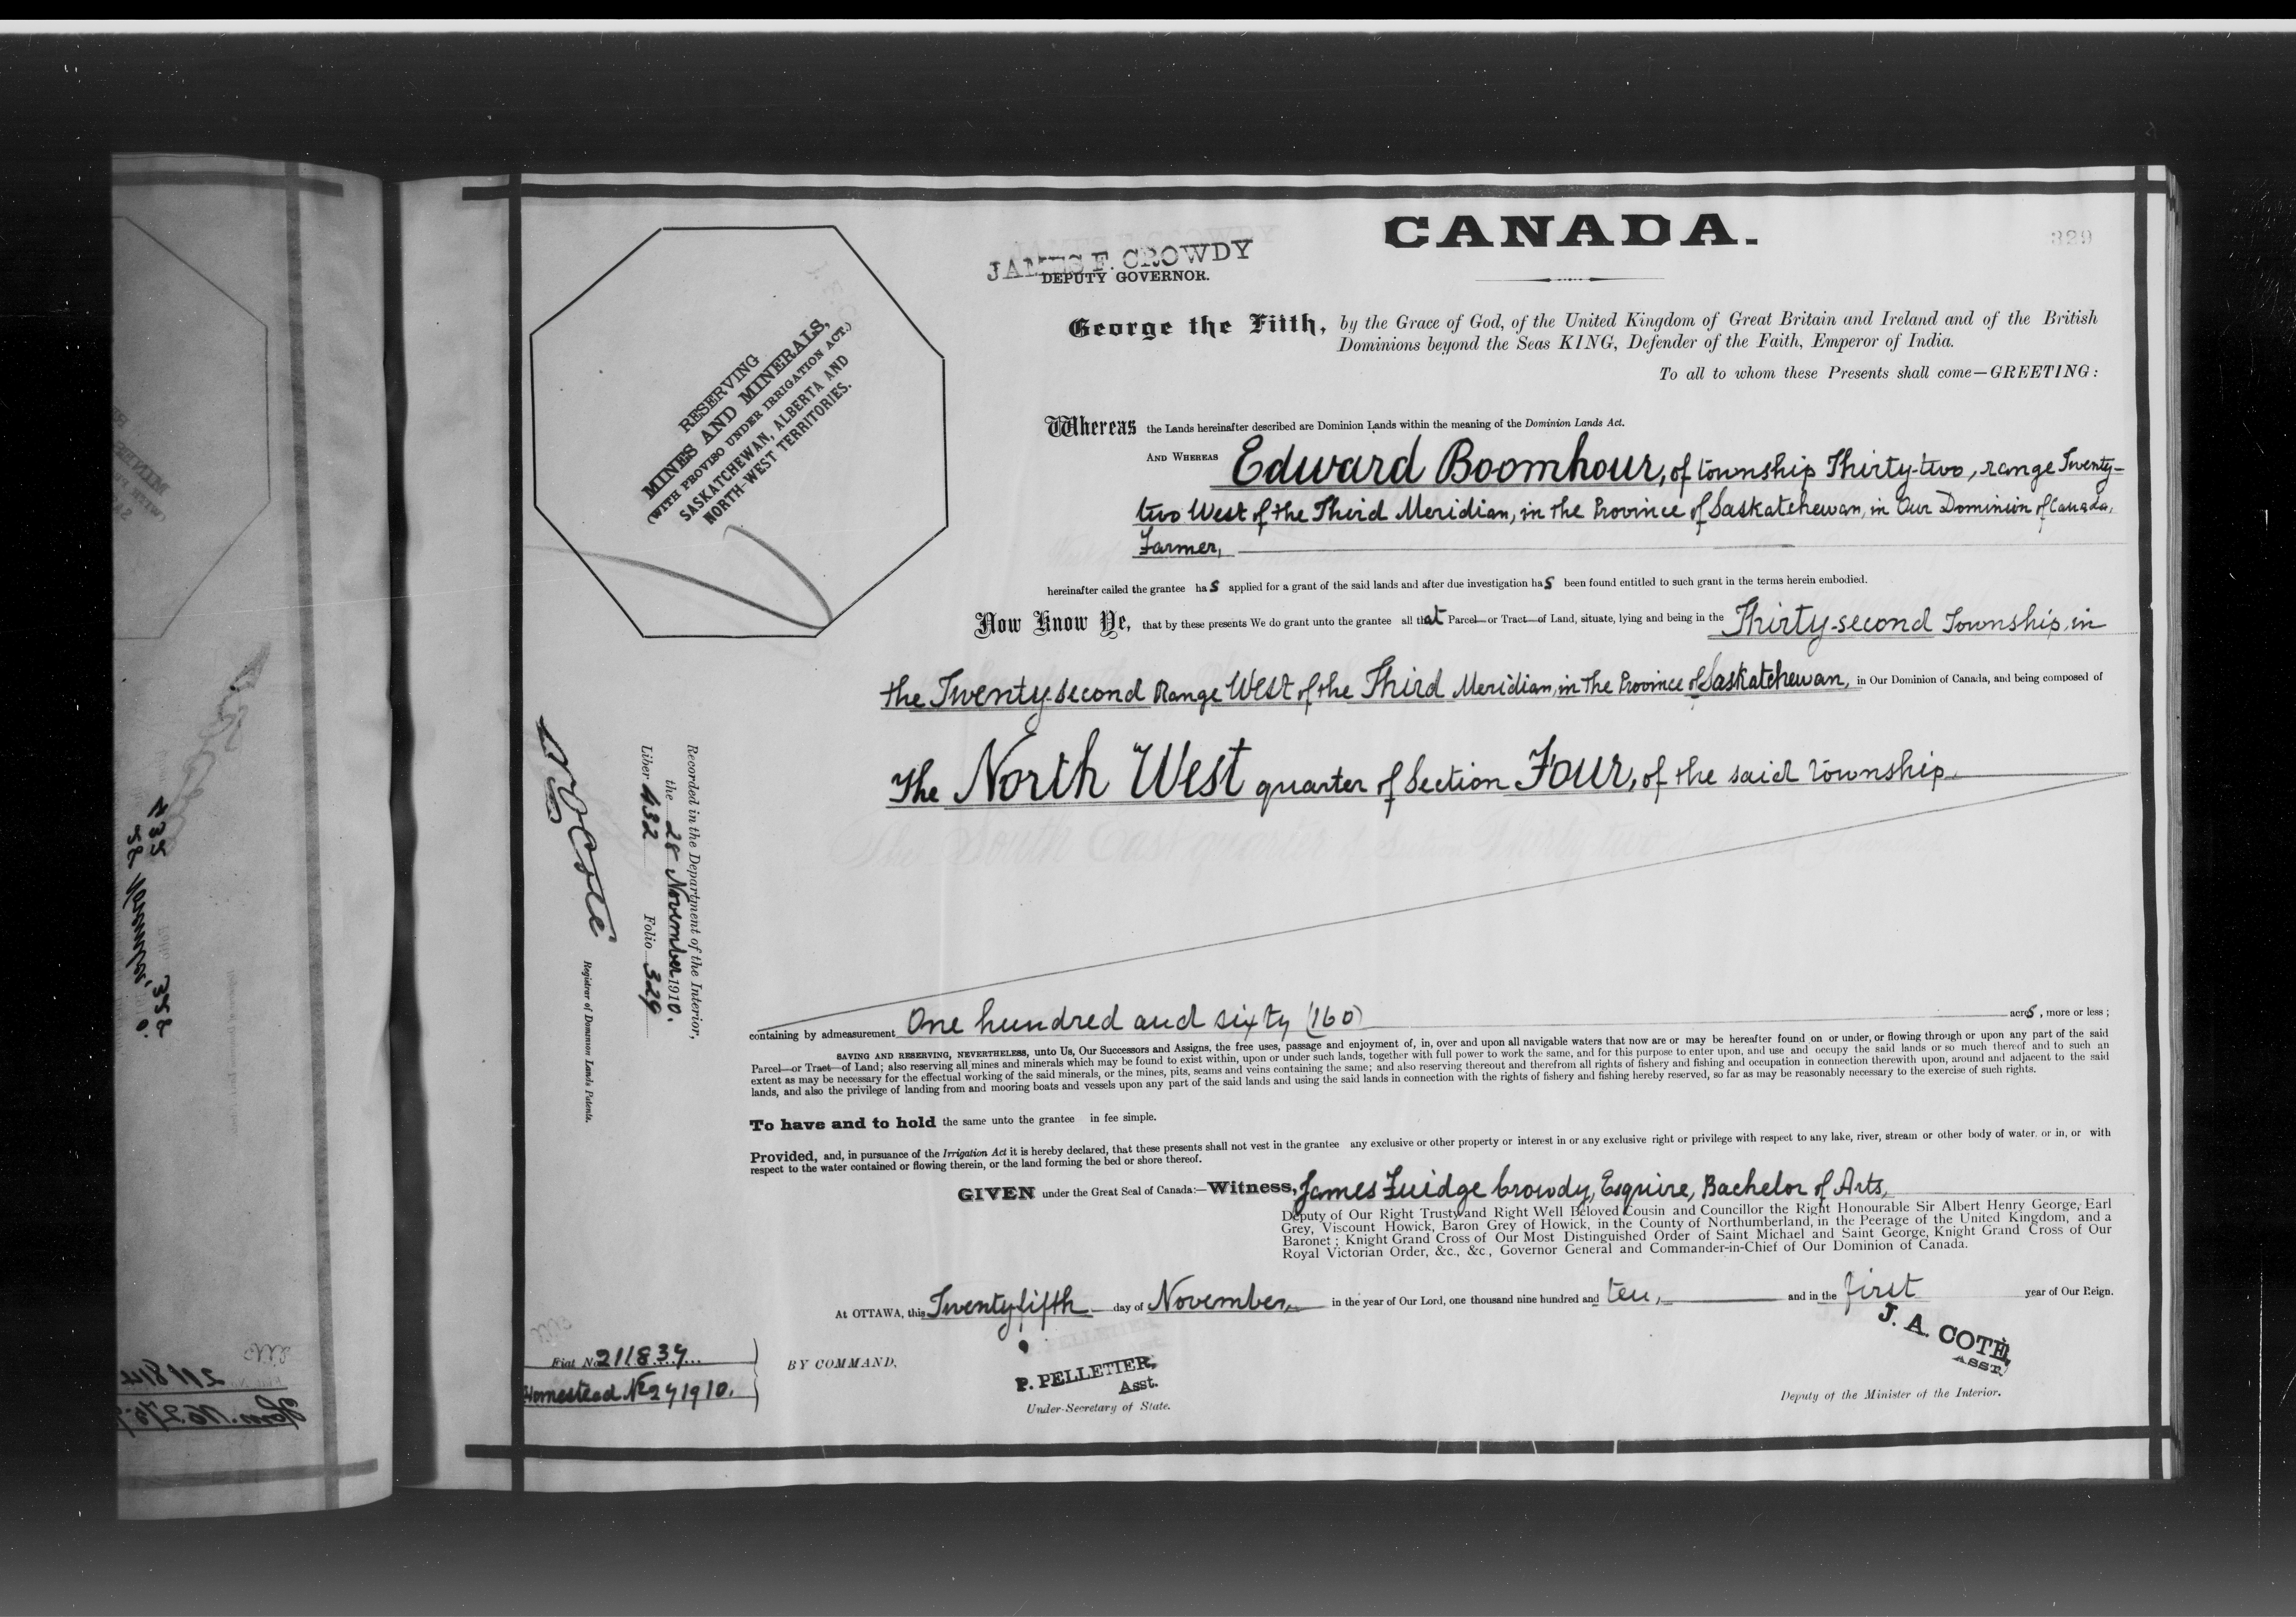 CANADA.
329
JAMES F. CROWDY
DEPUTY GOVERNOR.
George the Fifth, by the Grace of God, of the United Kingdom of Great Britain and Ireland and of the British
Dominions beyond the Seas KING, Defender of the Faith, Emperor of India.
To all to whom these Presents shall come—GREETING:
RESERVING
MINES AND MINERALS,
(WITH PROVISO UNDER IRRIGATION ACT.)
SASKATCHEWAN, ALBERTA AND
NORTH-WEST TERRITORIES.
Whereas the Lands hereinafter described are Dominion Lands within the meaning of the Dominion Lands Act.
AND WHEREAS Edward Boomhour, of township Thirty-two, range Twenty-
two West of the Third Meridian, in the Province of Saskatchewan, in Our Dominion of Canada,
Farmer,
hereinafter called the grantee has applied for a grant of the said lands and after due investigation has been found entitled to such grant in the terms herein embodied.
Now Know Ye, that by these presents We do grant unto the grantee all that Parcel or Tract of Land, situate, lying and being in the Thirty-second Township, in
the Twenty second Range West of the Third Meridian, in the Province of Saskatchewan, in Our Dominion of Canada, and being composed of
The North West quarter of Section Four, of the said township
Recorded in the Department of the Interior,
the 28 November 1910.
Liber 432 Folio 329
Registrar of Dominion Lands Patents.
containing by admeasurement One hundred and sixty (160) acres, more or less;
SAVING AND RESERVING, NEVERTHELESS, unto Us, Our Successors and Assigns, the free uses, passage and enjoyment of, in, over and upon all navigable waters that now are or may be hereafter found on or under, or flowing through or upon any part of the said
Parcel or Tract of Land; also reserving all mines and minerals which may be found to exist within, upon or under such lands, together with full power to work the same, and for this purpose to enter upon, and use and occupy the said lands or so much thereof and to such an
extent as may be necessary for the effectual working of the said minerals, or the mines, pits, seams and veins containing the same; and also reserving thereout and therefrom all rights of fishery and fishing and occupation in connection therewith upon, around and adjacent to the said
lands, and also the privilege of landing from and mooring boats and vessels upon any part of the said lands and using the said lands in connection with the rights of fishery and fishing hereby reserved, so far as may be reasonably necessary to the exercise of such rights.
To have and to hold the same unto the grantee in fee simple.
Provided, and, in pursuance of the Irrigation Act it is hereby declared, that these presents shall not vest in the grantee any exclusive or other property or interest in or any exclusive right or privilege with respect to any lake, river, stream or other body of water, or in, or with
respect to the water contained or flowing therein, or the land forming the bed or shore thereof.
GIVEN under the Great Seal of Canada:—Witness, James Fuidge Crowdy, Esquire, Bachelor of Arts,
Deputy of Our Right Trusty and Right Well Beloved Cousin and Councillor the Right Honourable Sir Albert Henry George, Earl
Grey, Viscount Howick, Baron Grey of Howick, in the County of Northumberland, in the Peerage of the United Kingdom, and a
Baronet; Knight Grand Cross of Our Most Distinguished Order of Saint Michael and Saint George, Knight Grand Cross of Our
Royal Victorian Order, &c., &c., Governor General and Commander-in-Chief of Our Dominion of Canada.
At OTTAWA, this Twenty fifth day of November, in the year of Our Lord, one thousand nine hundred and ten, and in the first year of Our Reign.
Fiat No 211839
Homestead No 291910.
BY COMMAND,
P. PELLETIER,
Asst.
Under-Secretary of State.
J. A. COTÉ,
ASST.
Deputy of the Minister of the Interior.